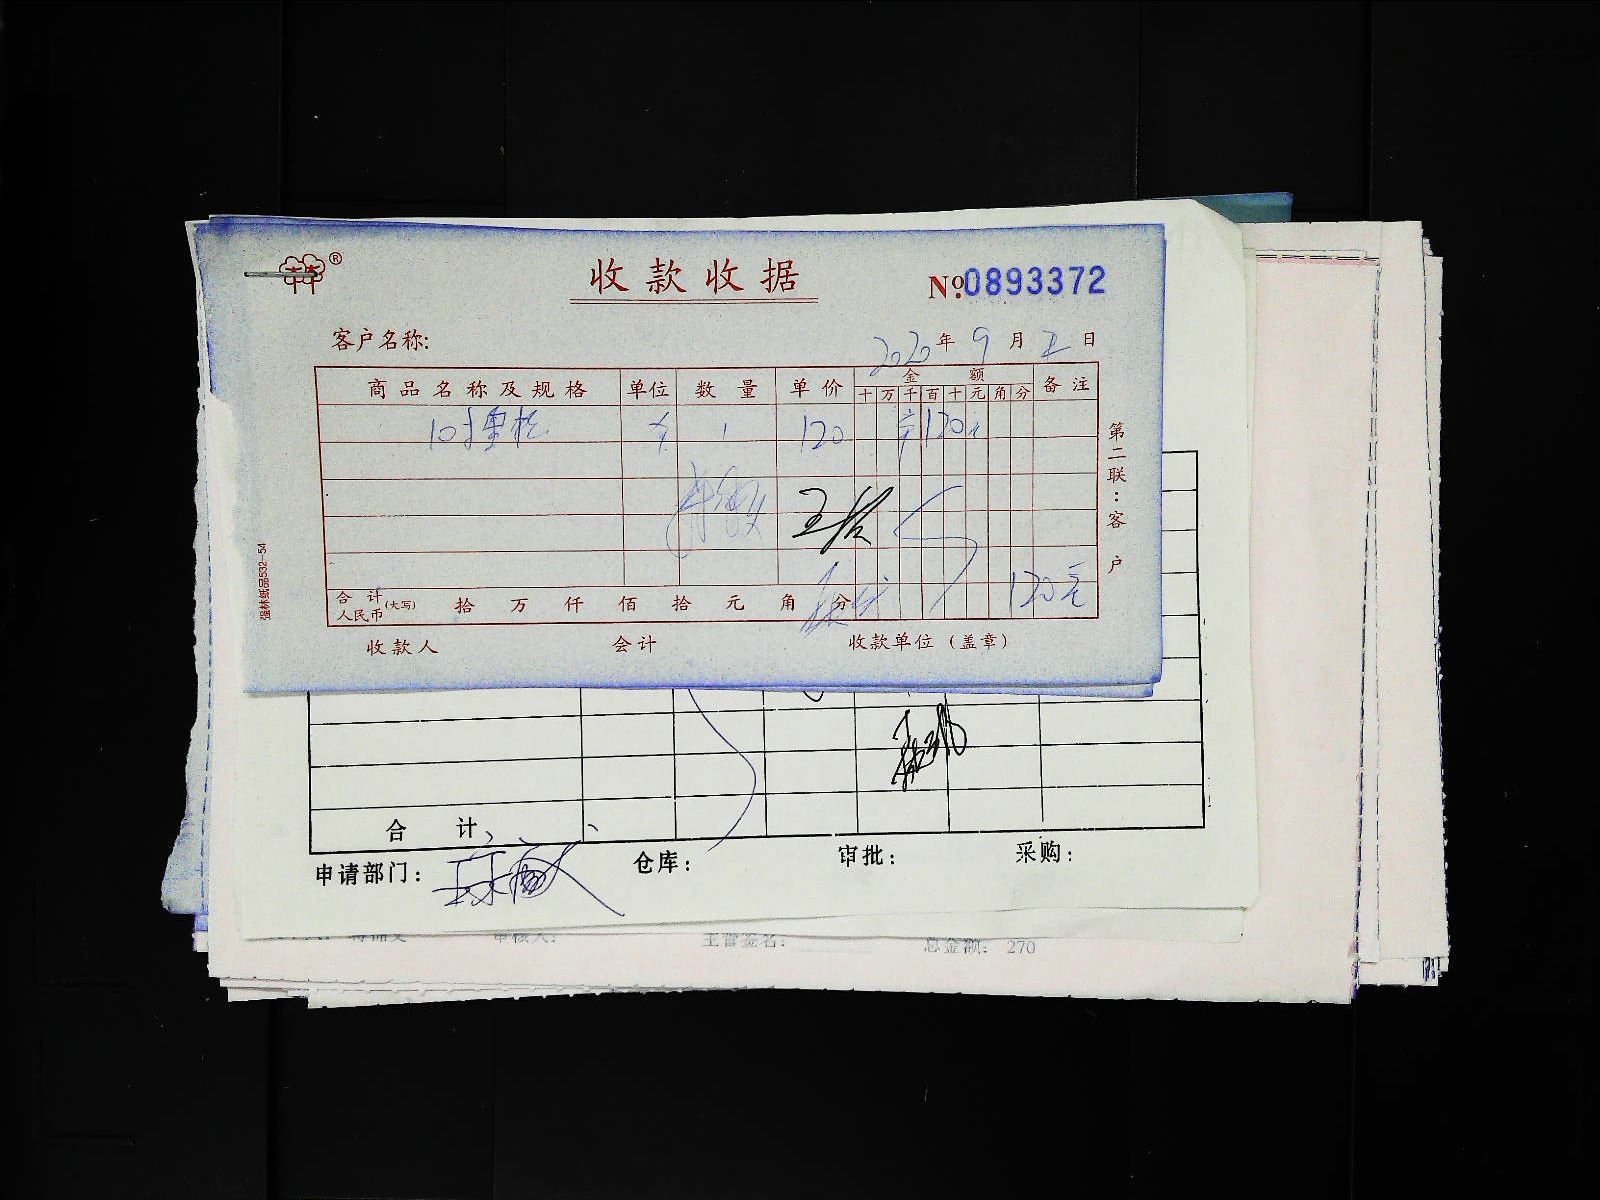 ®
收款收据
№0893372
客户名称:
2020年9月2日
商品名称及规格 单位 数量 单价 金额 备注
十 万 千 百 十 元 角 分
10 1 120 120元
120元
合计人民币(大写) 拾 万 仟 佰 拾 元 角 分
收款人 会计 收款单位(盖章)
第二联:客户
强林纸品532-54
合计
申请部门: 仓库: 审批: 采购:
审核人: 主管签名: 总金额: 270